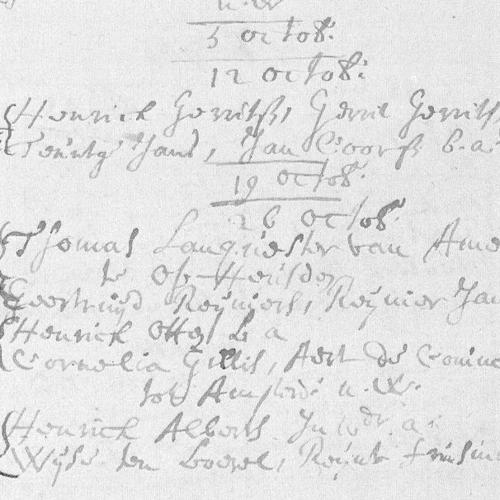 n. W
5 octob:
12 octob:
Henrick Gerritß, Gerrit Gerritß
Jans, Jan b. a
19 octob:
26 octob:
Thomas Langnester van Ame
te Op-Heusden
Geertruijd Reijniers, Reijnier Jan
Henrick Otteß b a
Cornelia Gillis, Aert de Coninc
tot Amsterd: n. W.
Henrick Alberts Jn a:
Wijse ten Boevel, Reijnt